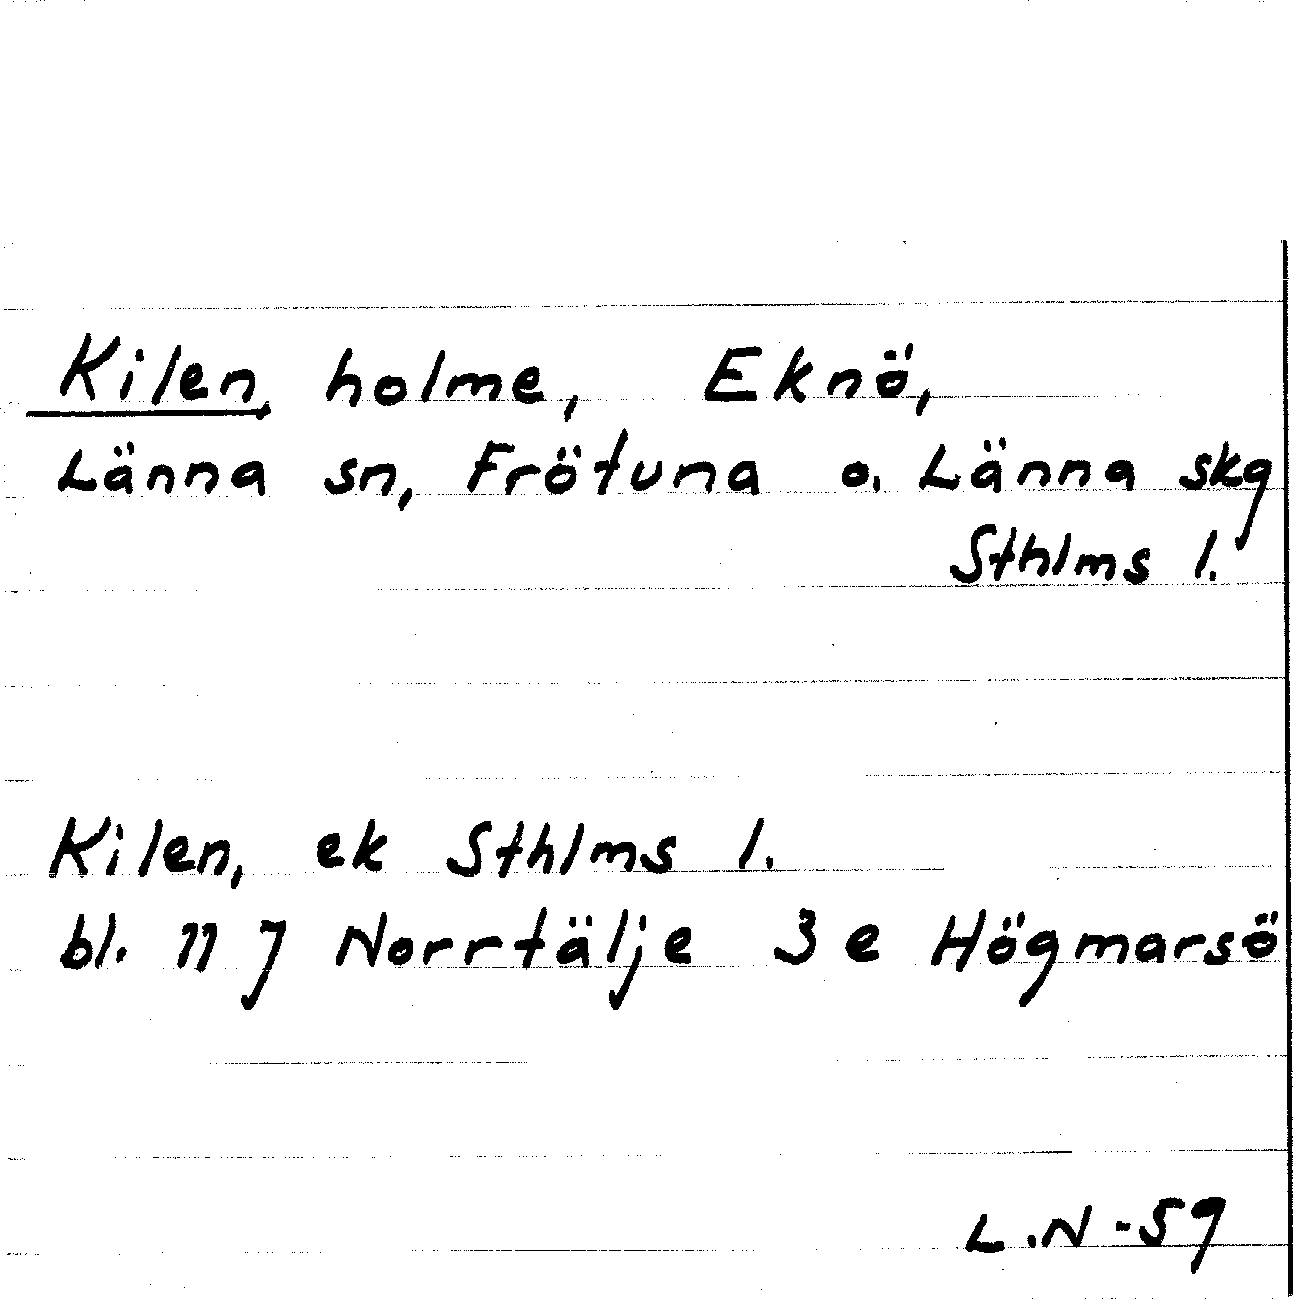 Kilen, holme, Eknö,
Länna sn, Frötuna o. Länna skg
Sthlms l.
Kilen, ek Sthlms l.
bl. 11 J Norrtälje 3 e Högmarsö
L.N-59